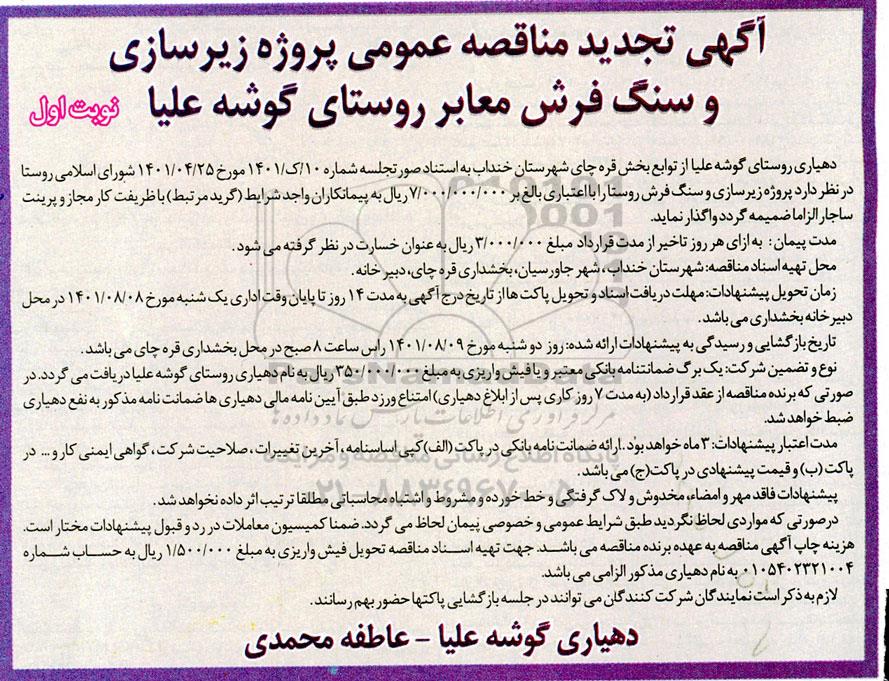 آگهی تجدید مناقصه عمومی پروژه زیرسازی
و سنگ فرش معابر روستای گوشه علیا نوبت اول
دهیاری روستای گوشه علیا از توابع بخش قره چای شهرستان خنداب به استناد صورتجلسه شماره ۱۰/ک/۱۴۰۱ مورخ ۱۴۰۱/۰۴/۲۵ شورای اسلامی روستا
در نظر دارد پروژه زیرسازی و سنگ فرش روستا را با اعتباری بالغ بر ۷/۰۰۰/۰۰۰/۰۰۰ ریال به پیمانکاران واجد شرایط (گرید مرتبط) با ظریفت کار مجاز و پرینت
ساجار الزاما ضمیمه گردد واگذار نماید.
مدت پیمان: به ازای هر روز تاخیر از مدت قرارداد مبلغ ۳/۰۰۰/۰۰۰ ریال به عنوان خسارت در نظر گرفته می شود.
محل تهیه اسناد مناقصه: شهرستان خنداب، شهر جاورسیان، بخشداری قره چای، دبیرخانه.
زمان تحویل پیشنهادات: مهلت دریافت اسناد و تحویل پاکت ها از تاریخ درج آگهی به مدت ۱۴ روز تا پایان وقت اداری یک شنبه مورخ ۱۴۰۱/۰۸/۰۸ در محل
دبیرخانه بخشداری می باشد.
تاریخ بازگشایی و رسیدگی به پیشنهادات ارائه شده: روز دو شنبه مورخ ۱۴۰۱/۰۸/۰۹ راس ساعت ۸ صبح در محل بخشداری قره چای می باشد.
نوع و تضمین شرکت: یک برگ ضمانتنامه بانکی معتبر و یا فیش واریزی به مبلغ ۳۵۰/۰۰۰/۰۰۰ ریال به نام دهیاری روستای گوشه علیا دریافت می گردد. در
صورتی که برنده مناقصه از عقد قرارداد (به مدت ۷ روز کاری پس از ابلاغ دهیاری) امتناع ورزد طبق آیین نامه مالی دهیاری ها ضمانت نامه مذکور به نفع دهیاری
ضبط خواهد شد.
مدت اعتبار پیشنهادات: ۳ ماه خواهد بود. ارائه ضمانت نامه بانکی در پاکت (الف) کپی اساسنامه، آخرین تغییرات، صلاحیت شرکت، گواهی ایمنی کار و... در
پاکت (ب) و قیمت پیشنهادی در پاکت (ج) می باشد.
پیشنهادات فاقد مهر و امضاء، مخدوش و لاک گرفتگی و خط خورده و مشروط و اشتباه محاسباتی مطلقا ترتیب اثر داده نخواهد شد.
درصورتی که مواردی لحاظ نگردید طبق شرایط عمومی و خصوصی پیمان لحاظ می گردد. ضمنا کمیسیون معاملات در رد و قبول پیشنهادات مختار است.
هزینه چاپ آگهی مناقصه به عهده برنده مناقصه می باشد. جهت تهیه اسناد مناقصه تحویل فیش واریزی به مبلغ ۱/۵۰۰/۰۰۰ ریال به حساب شماره
۰۱۰۵۴۰۲۳۲۱۰۰۴ به نام دهیاری مذکور الزامی می باشد.
لازم به ذکر است نمایندگان شرکت کنندگان می توانند در جلسه بازگشایی پاکتها حضور بهم رسانند.
دهیاری گوشه علیا - عاطفه محمدی